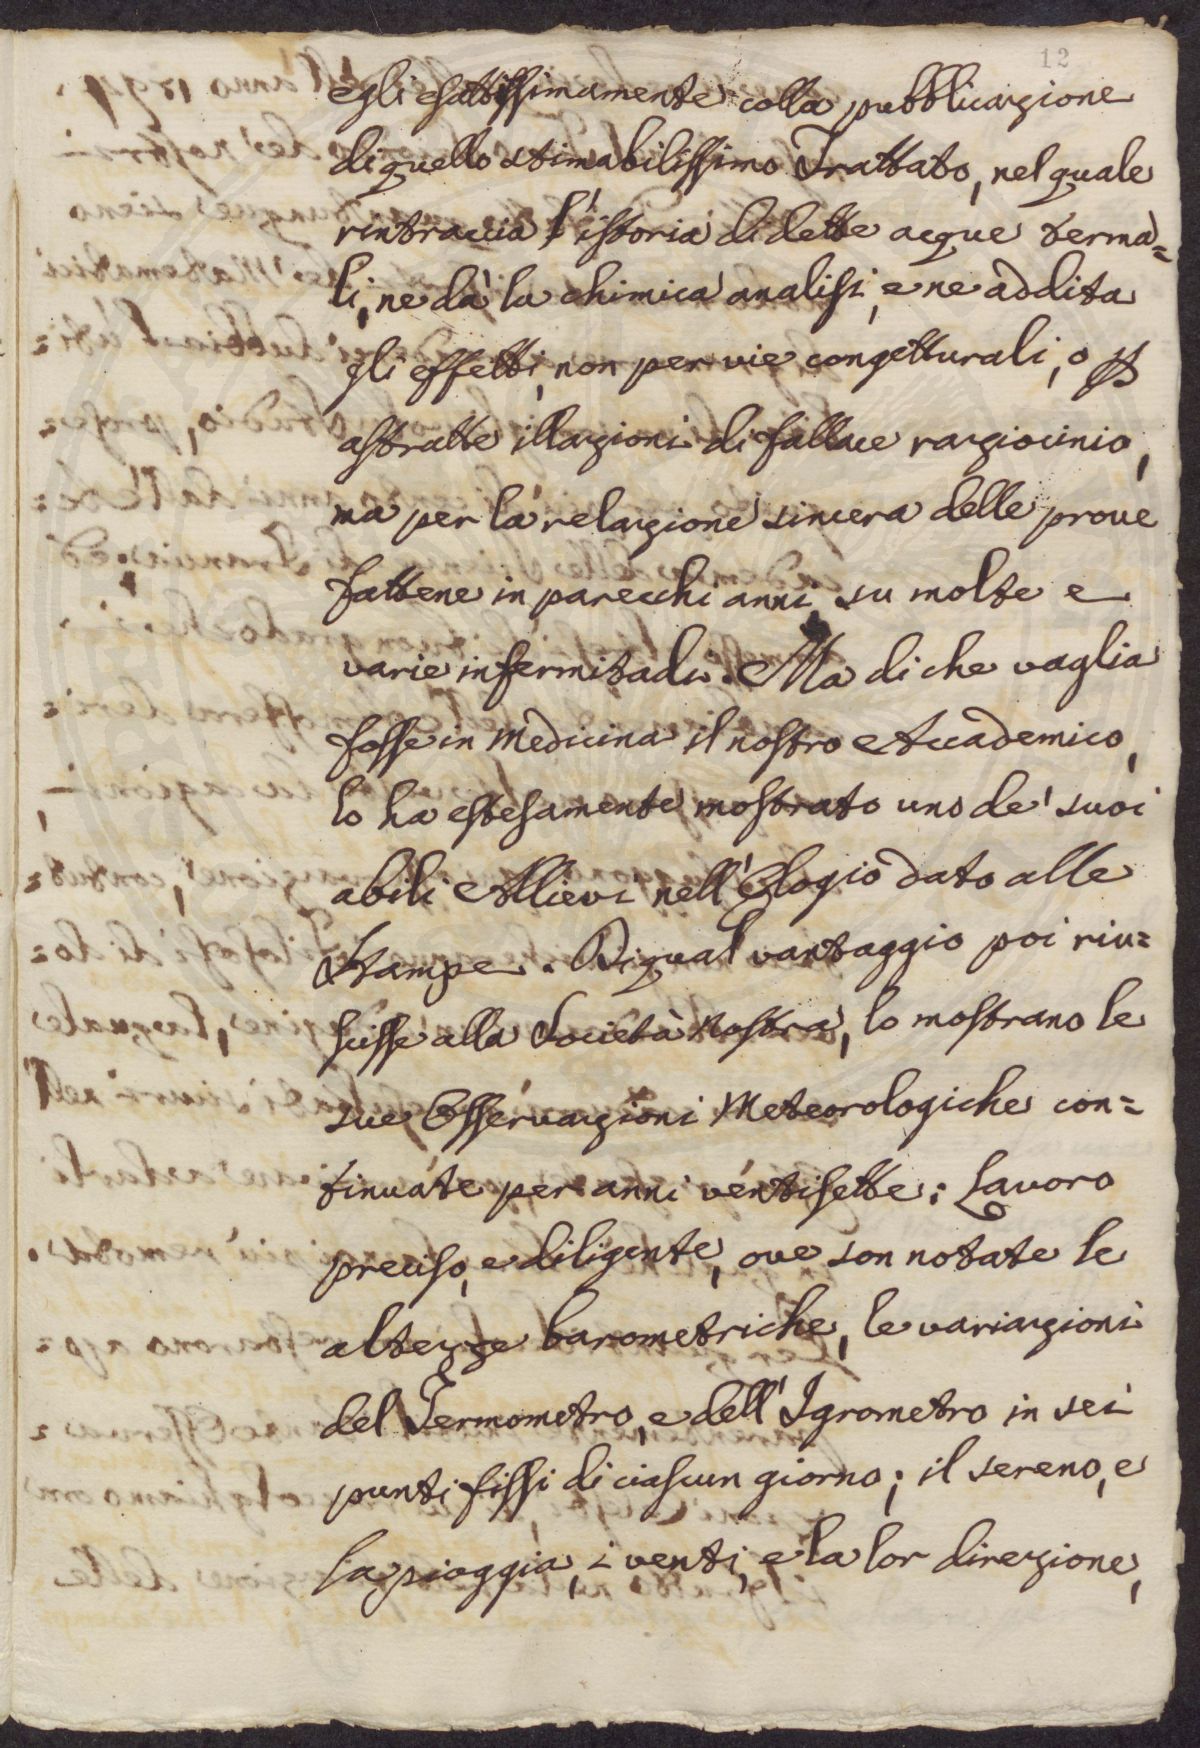 12
egli esattissimamente colla pubblicazione
di quello stimabilissimo Trattato, nel quale
rintraccia l'istoria di dette acque terma=
li, ne dà la chimica analisi, e ne addita
gli effetti, non per vie congetturali, o
astratte illazioni di fallace raziocinio,
ma per la relazione sincera delle prove
fattene in parecchi anni su molte e
varie infermitadi. Ma di che vaglia
fosse in Medicina il nostro Accademico,
lo ha estesamente mostrato uno de' suoi
abili Allievi nell'Elogio dato alle
Stampe. Di qual vantaggio poi riu=
scisse alla Società Nostra, lo mostrano le
sue Osservazioni Meteorologiche con=
tinuate per anni ventisette; Lavoro
preciso, e diligente, ove son notate le
altezze barometriche, le variazioni
del Termometro, e dell'Igrometro in sei
punti fissi di ciascun giorno; il sereno, e
la pioggia, i venti, e la lor direzione,